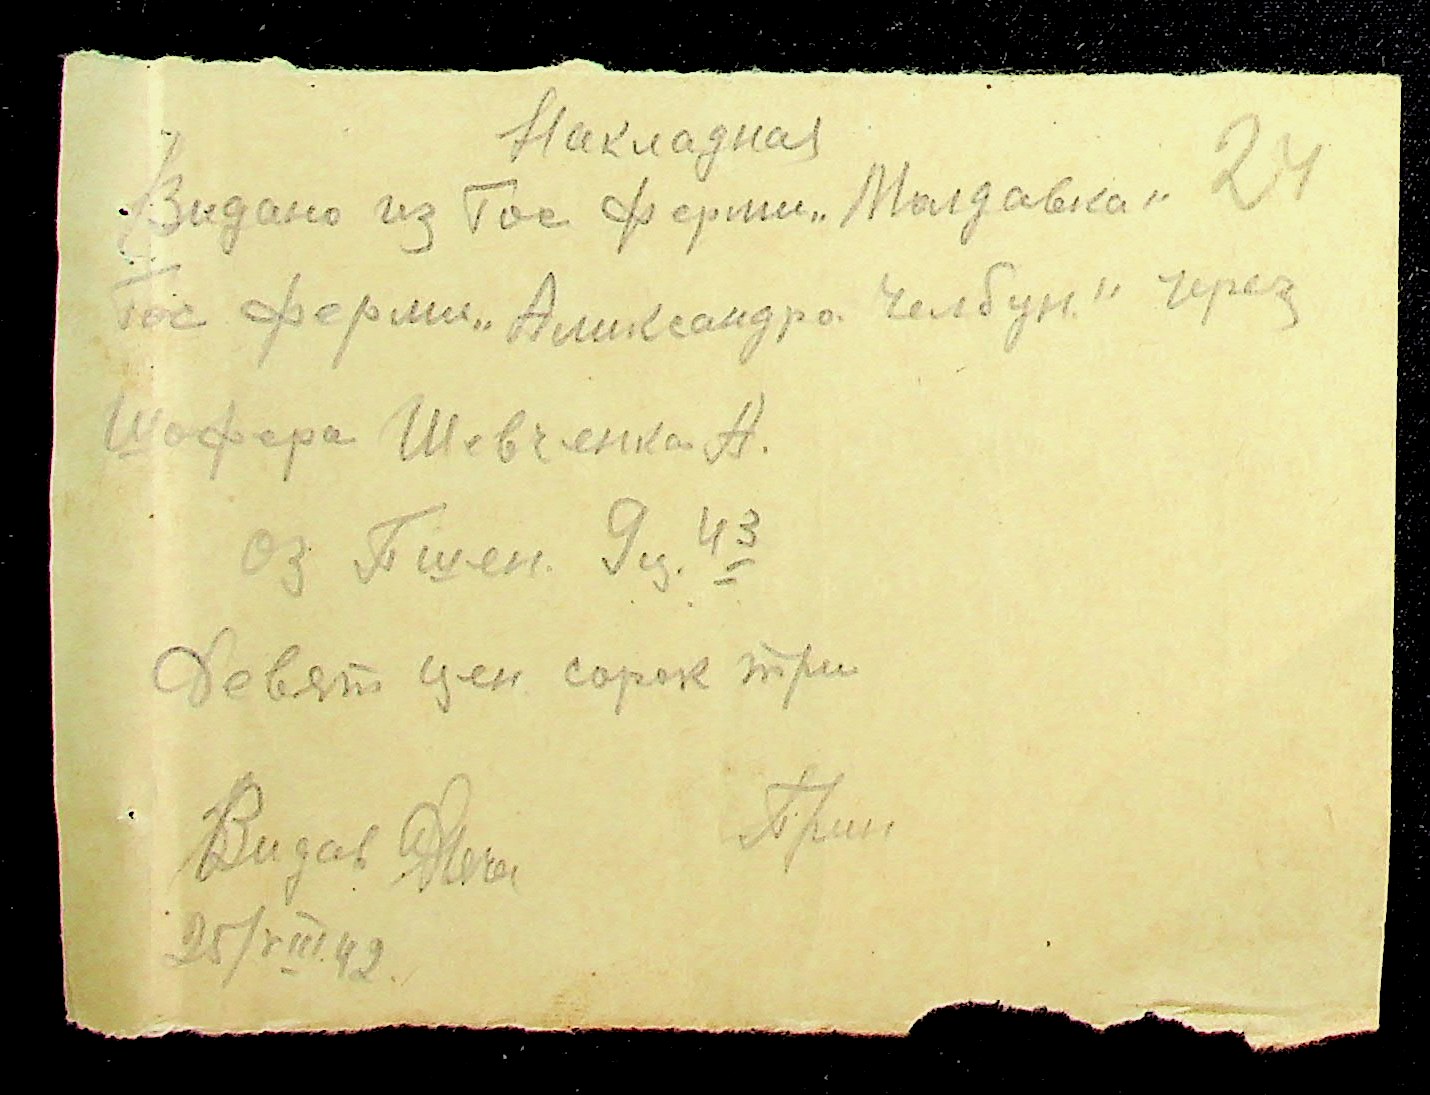 Накладная
24
Видано из Гос ферми „Молдавка“
Гос ферми „Александра Челбун.“ через
Шофера Шевченка А.
Оз Пшен. 9ц. 43
Девят цен сорок три
Видав Прин
25/VIII 42.